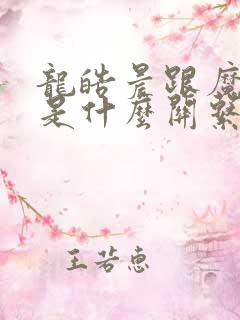 龍皓晨跟魔
是什麼關繫
王若惠